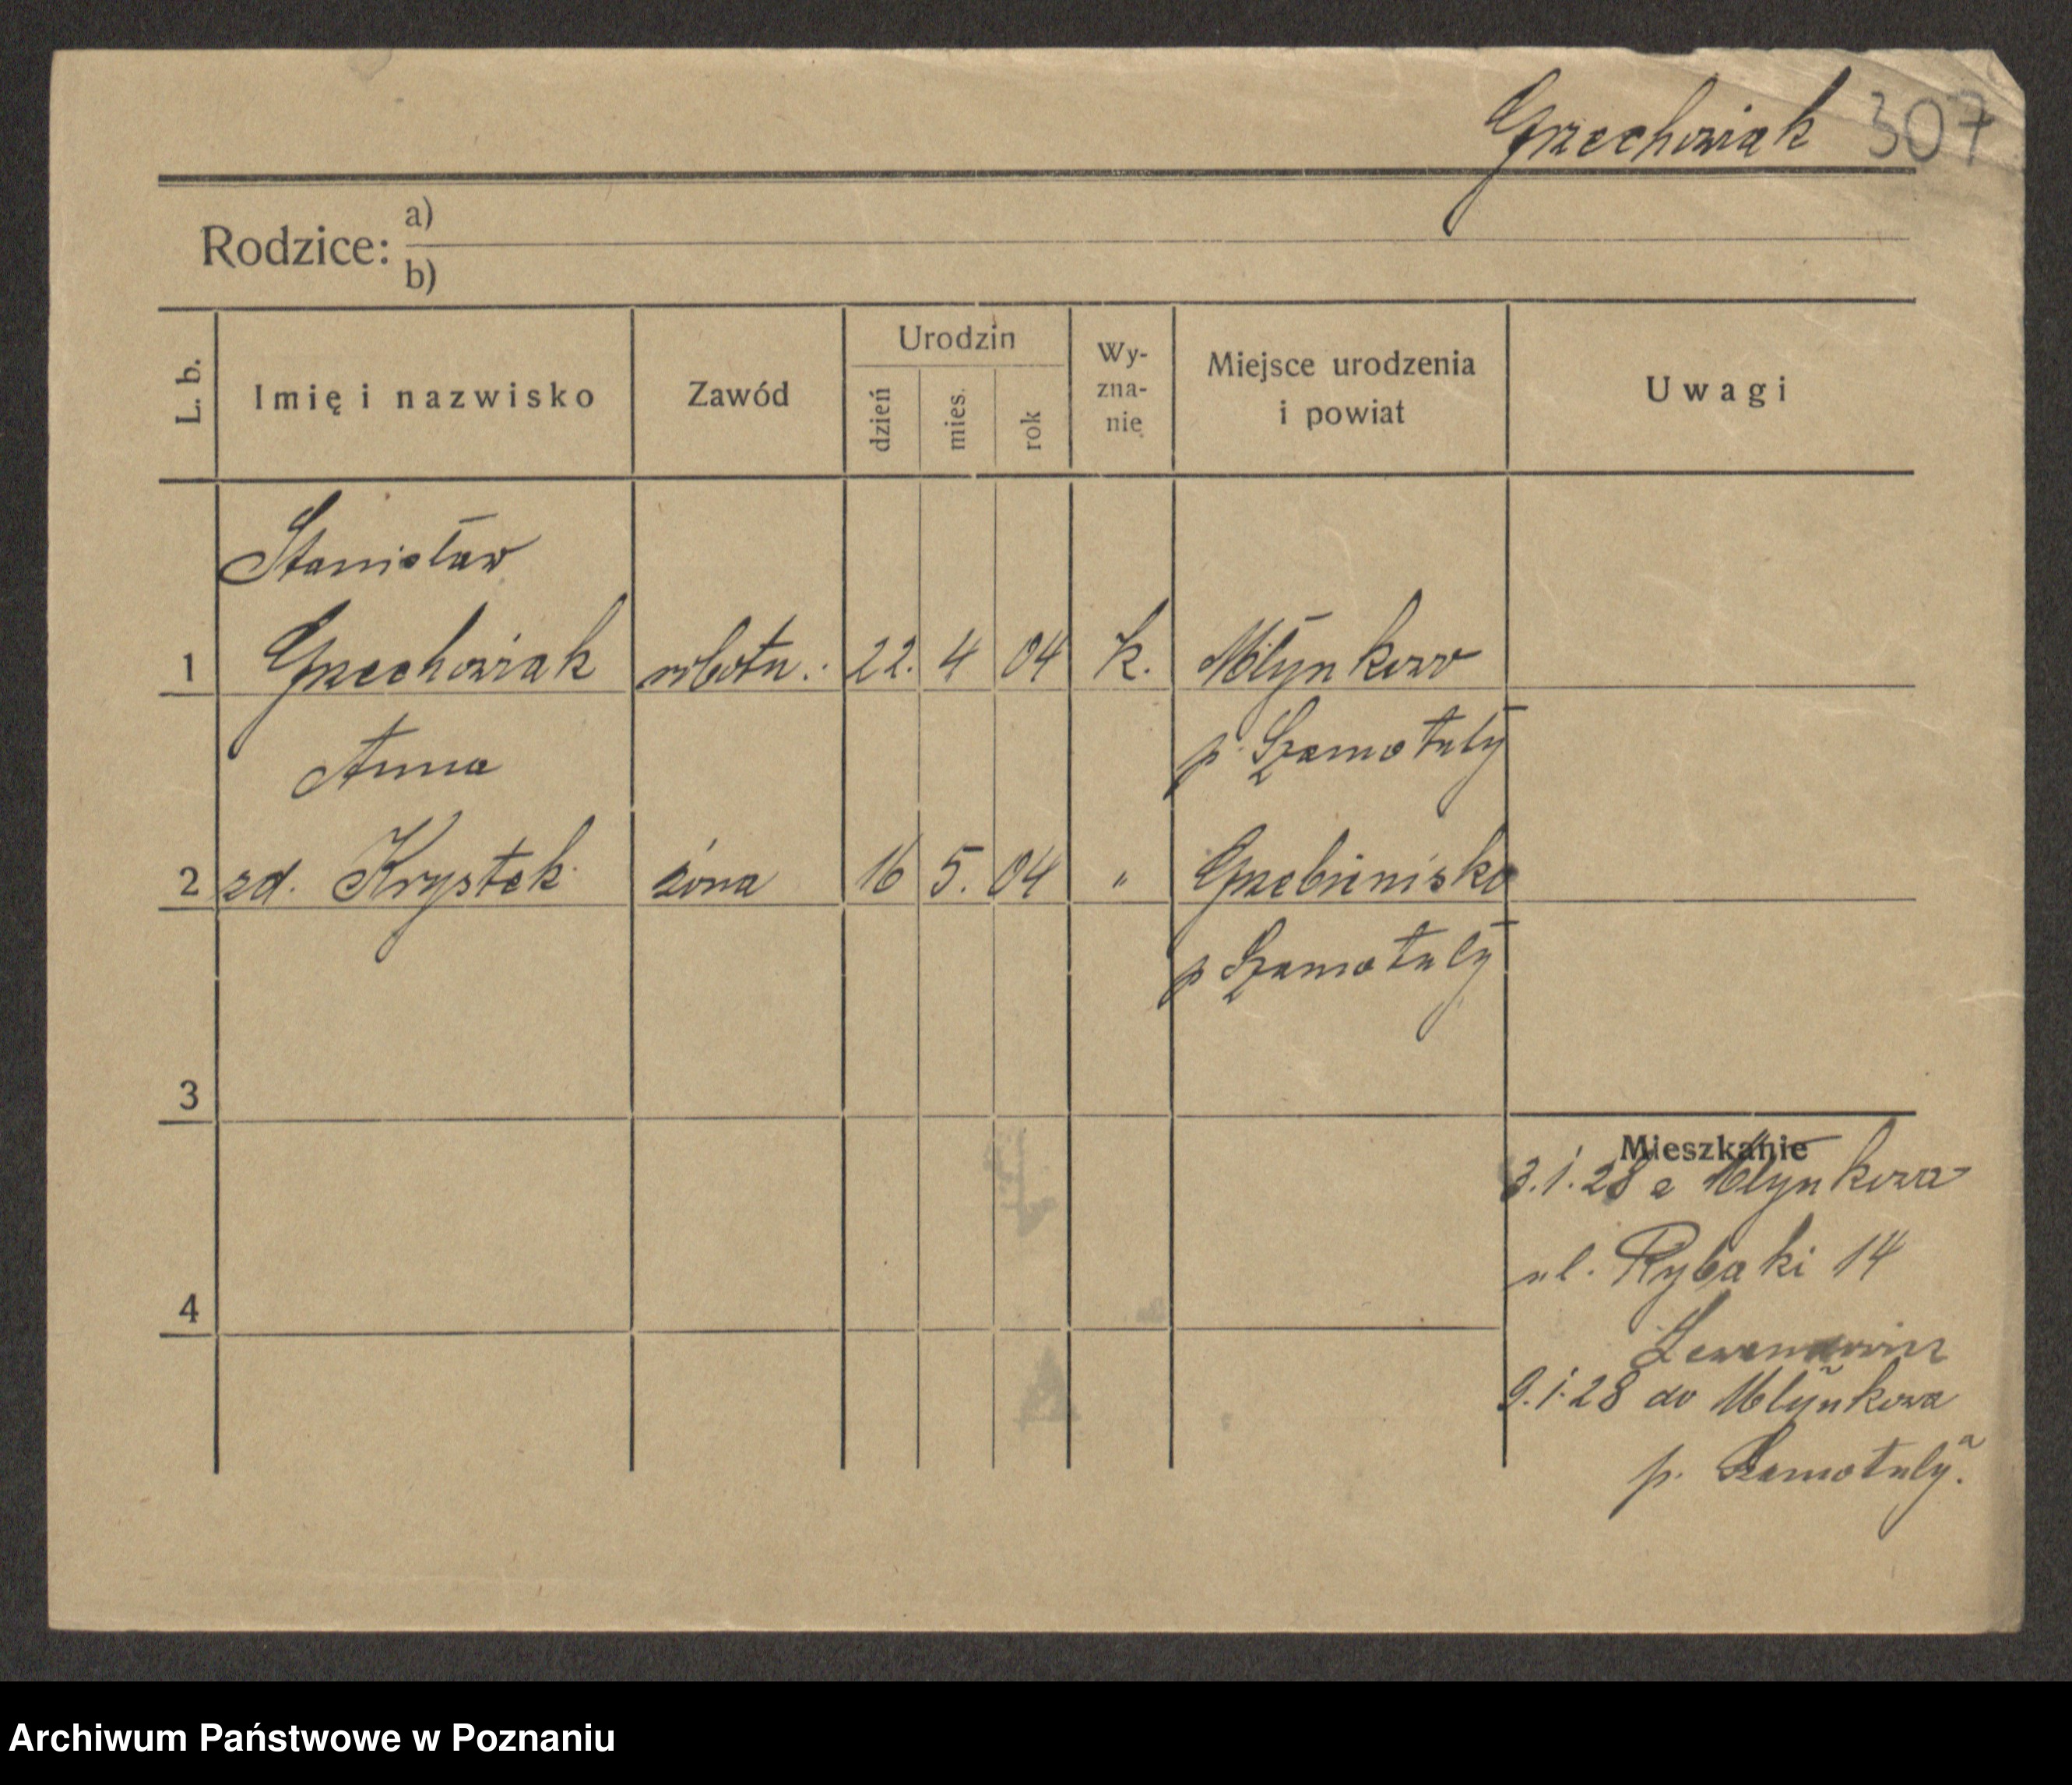 Grzechowiak 307
Rodzice: a)
b)
L. b. Imię i nazwisko Zawód Urodzin dzień mies. rok Wy-zna-nie Miejsce urodzenia i powiat Uwagi
Stanisław
1 Grzechowiak robotn. 22. 4 04 k. Młynkowo
p. Szamotuły
Anna
2 zd. Krystek żona 16 5. 04 " Grzebienisko
p Szamotuły
3
4
Mieszkanie
3.1.28 z Młynkowa
ul. Rybaki 14
9.1.28 do Młynkowa
p. Szamotuły.
Archiwum Państwowe w Poznaniu